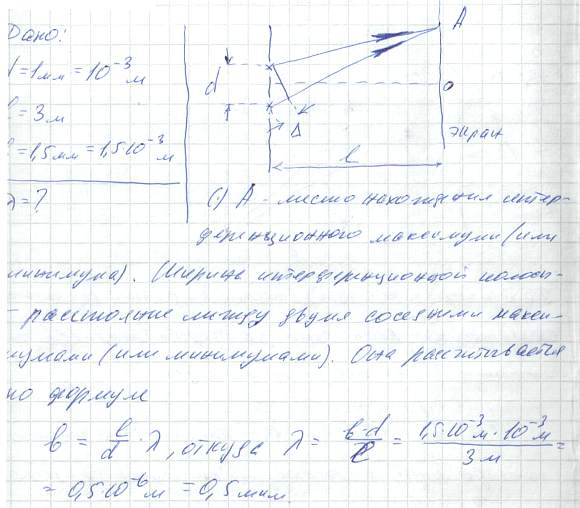 Дано:
d = 1 мм = 10⁻³ м
ℓ = 3 м
= 1,5 мм = 1,5·10⁻³ м
λ = ?
A
d
0
Δ
экран
ℓ
A - место нахождения интер-
ференционного максимума (или
минимума). Ширина интерференционной полосы -
- расстояние между двумя соседними макси-
мумами (или минимумами). Она рассчитывается
по формуле
b = ℓ/d · λ, откуда λ = b·d/ℓ = 1,5·10⁻³ м · 10⁻³ м / 3 м =
= 0,5·10⁻⁶ м = 0,5 мкм.